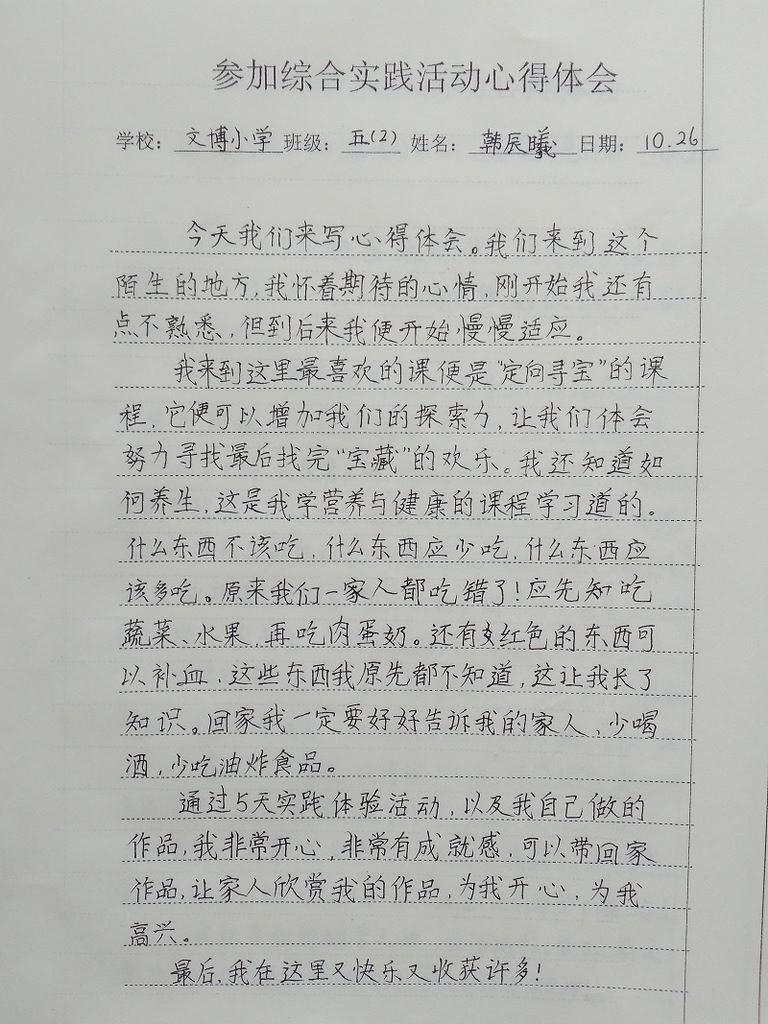 参加综合实践活动心得体会
学校：文博小学 班级：五(2) 姓名：韩辰曦 日期：10.26
今天我们来写心得体会。我们来到这个
陌生的地方,我怀着期待的心情,刚开始我还有
点不熟悉,但到后来我便开始慢慢适应。
我来到这里最喜欢的课便是“定向寻宝”的课
程,它便可以增加我们的探索力,让我们体会
努力寻找最后找完“宝藏”的欢乐。我还知道如
何养生,这是我学营养与健康的课程学习道的。
什么东西不该吃,什么东西应少吃,什么东西应
该多吃。原来我们一家人都吃错了!应先知吃
蔬菜、水果,再吃肉蛋奶。还有红色的东西可
以补血,这些东西我原先都不知道,这让我长了
知识。回家我一定要好好告诉我的家人,少喝
酒,少吃油炸食品。
通过5天实践体验活动,以及我自己做的
作品,我非常开心,非常有成就感,可以带回家
作品,让家人欣赏我的作品,为我开心,为我
高兴。
最后,我在这里又快乐又收获许多!